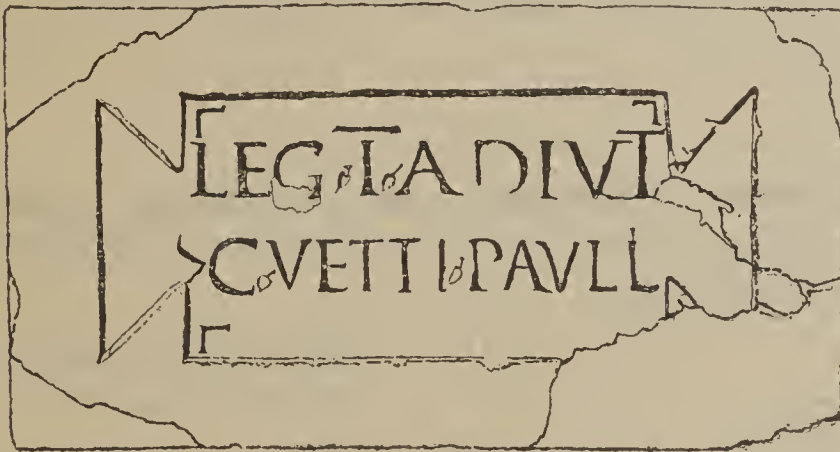 LEG I ADIVT
C VETTI PAVLL